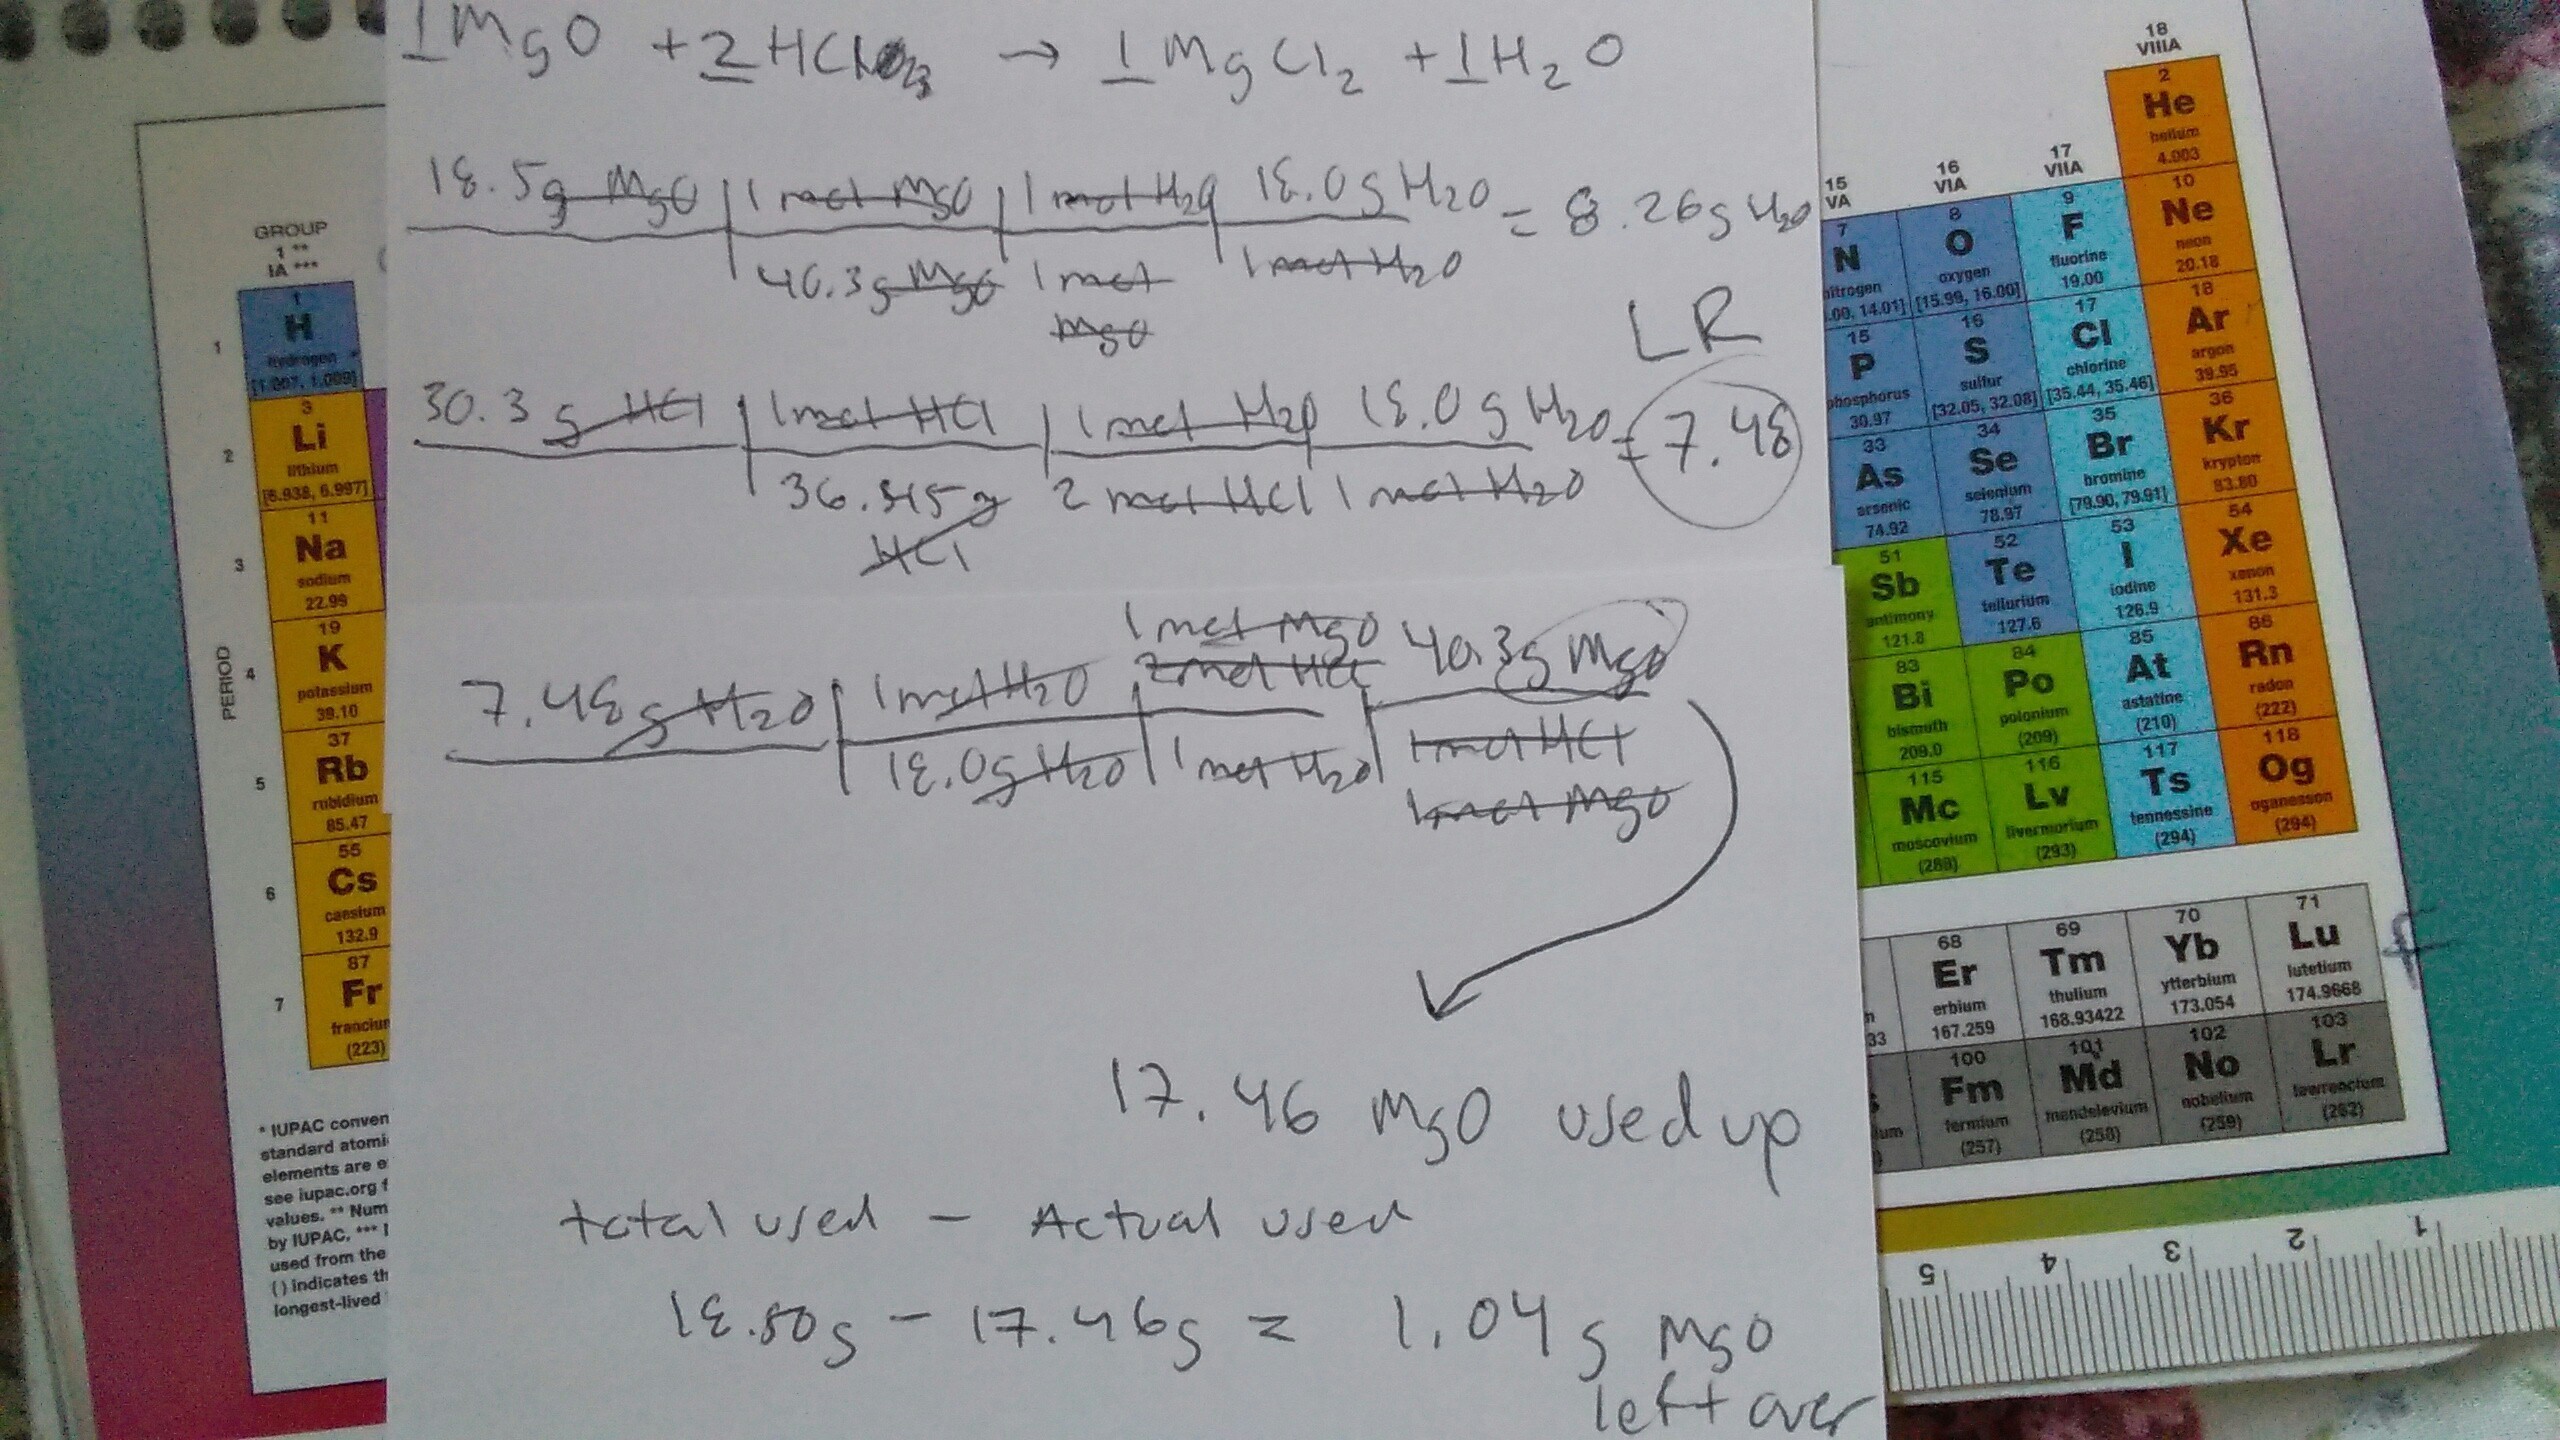 1MgO + 2HCl → 1MgCl2 + 1H2O
18.5g MgO | 1 mol MgO | 1 mol H2O | 18.0g H2O = 8.26g H2O
40.3g MgO 1 mol MgO 1 mol H2O
LR
30.3 g HCl | 1 mol HCl | 1 mol H2O | 18.0 g H2O = 7.48
36.45g HCl 2 mol HCl 1 mol H2O
1 mol MgO
7.48g H2O | 1 mol H2O | 2 mol HCl | 40.3g MgO
18.0g H2O | 1 mol H2O | 1 mol HCl
1 mol MgO
17.46 MgO used up
total used - Actual used
18.50g - 17.46g = 1.04g MgO
left over
GROUP
1 **
IA ***
PERIOD
1
1
H
hydrogen *
[1.007, 1.009]
2
3
Li
lithium
[6.938, 6.997]
3
11
Na
sodium
22.99
4
19
K
potassium
39.10
5
37
Rb
rubidium
85.47
6
55
Cs
caesium
132.9
7
87
Fr
franciu
(223)
* IUPAC conven
standard atomi
elements are e
see iupac.org f
values. ** Num
by IUPAC, *** I
used from the
( ) indicates th
longest-lived
15
VA
16
VIA
17
VIIA
18
VIIIA
2
He
helium
4.003
7
N
nitrogen
.00, 14.01]
8
O
oxygen
[15.99, 16.00]
9
F
fluorine
19.00
10
Ne
neon
20.18
15
P
phosphorus
30.97
16
S
sulfur
[32.05, 32.08]
17
Cl
chlorine
[35.44, 35.46]
18
Ar
argon
39.95
33
As
arsenic
74.92
34
Se
selenium
78.97
35
Br
bromine
[79.90, 79.91]
36
Kr
krypton
83.80
51
Sb
antimony
121.8
52
Te
tellurium
127.6
53
I
iodine
126.9
54
Xe
xenon
131.3
83
Bi
bismuth
209.0
84
Po
polonium
(209)
85
At
astatine
(210)
86
Rn
radon
(222)
115
Mc
moscovium
(288)
116
Lv
livermorium
(293)
117
Ts
tennessine
(294)
118
Og
oganesson
(294)
33
68
Er
erbium
167.259
69
Tm
thulium
168.93422
70
Yb
ytterbium
173.054
71
Lu
lutetium
174.9668
100
Fm
fermium
(257)
101
Md
mendelevium
(258)
102
No
nobelium
(259)
103
Lr
lawrencium
(262)
f
5 4 3 2 1